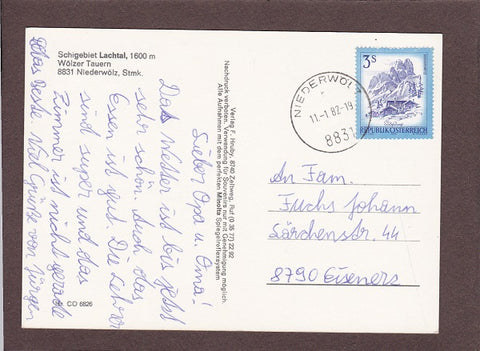 Schigebiet Lachtal, 1600 m
Wölzer Tauern
8831 Niederwölz, Stmk.
Lieber Opa u. Oma!
Das Wetter ist bis jetzt
sehr schön. Auch das
Essen ist gut. Die Lehrer
sind super und das
Zimmer ist nicht gerade
das beste. Viel Grüsse von Jürgen
CO 6826
Verlag F. Houby, 8740 Zeltweg, Ruf (0 35 77) 22 92
Nachdruck verboten. Verwendung für Souvenirs nur mit Genehmigung möglich.
Alle Aufnahmen mit dem perfekten Minolta Spiegelreflexsystem
NIEDERWÖLZ
11.-1.82-19
8831
3S
REPUBLIK ÖSTERREICH
An Fam.
Fuchs Johann
Lärchenstr. 44
8790 Eisenerz